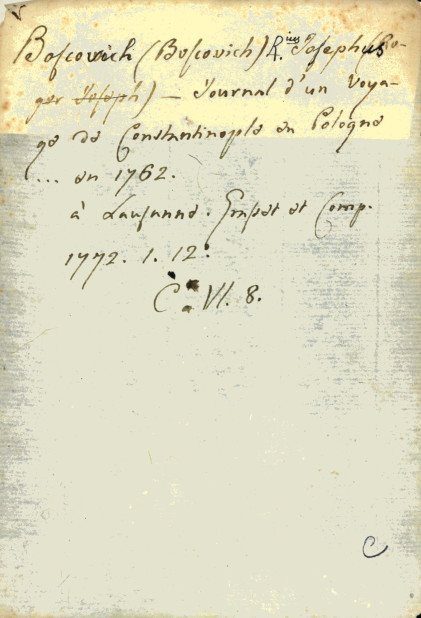 Boscovich (Boscovich) R.ius Josephus (Ro-
ger Joseph) — Journal d'un Voya-
ge de Constantinople en Pologne
(... en 1762.
à Lausanne. Grasset et Comp.
1772. 1. 12°
C a VI. 8.
C